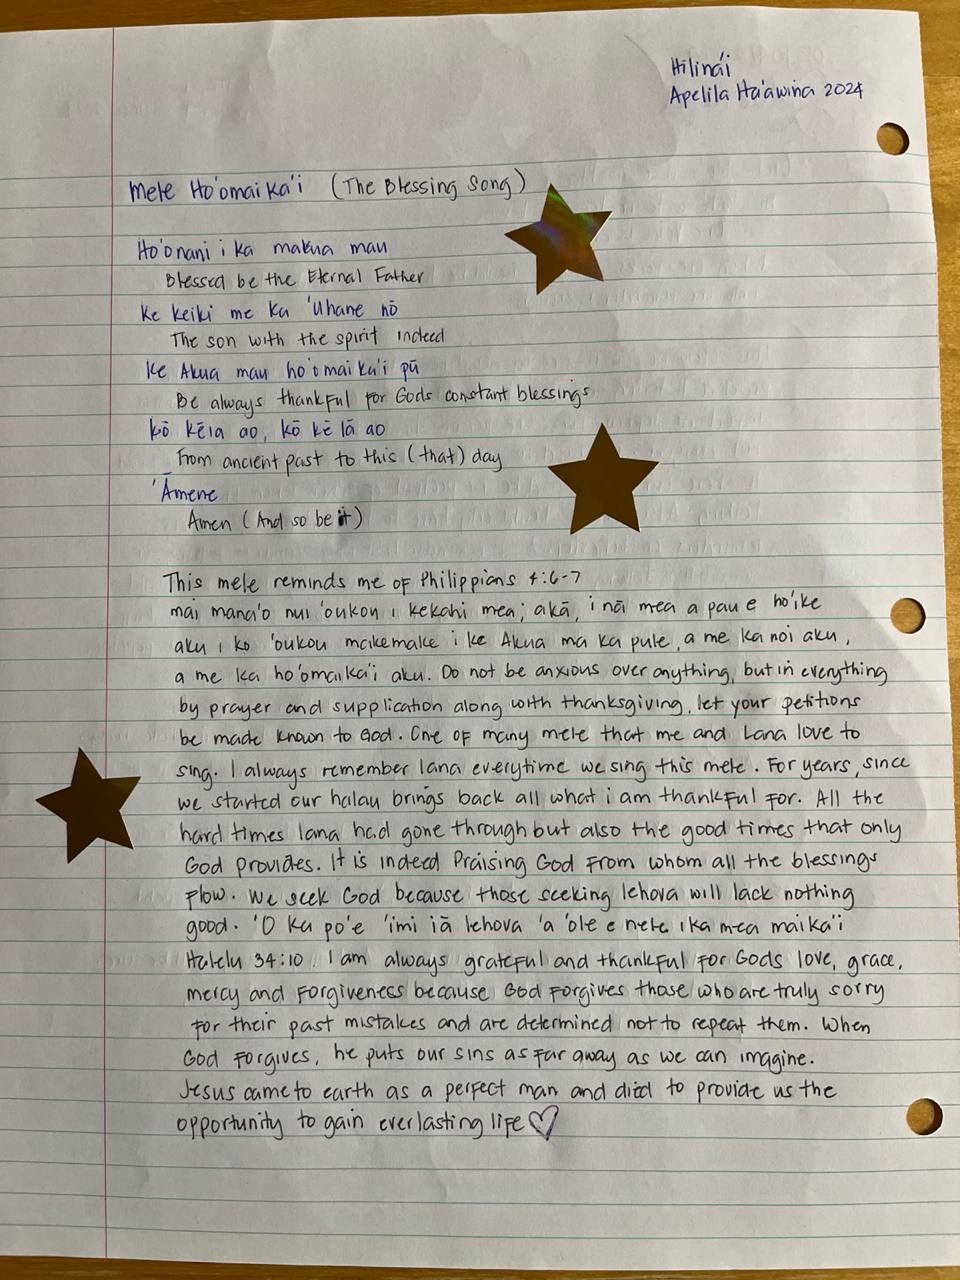 Hilina'i
Apelila Ha'awina 2024
Mele Ho'omaika'i (The Blessing Song)
Ho'onani i ka makua mau
Blessed be the Eternal Father
Ke keiki me ka 'Uhane nō
The son with the spirit indeed
Ke Akua mau ho'omaika'i pū
Be always thankful for Gods constant blessings
Kō kēia ao, kō kē lā ao
From ancient past to this (that) day
'Āmene
Amen (And so be it)
This mele reminds me of Philippians 4:6-7
mai mana'o nui 'oukou i kekahi mea; akā, i nā mea a pau e ho'ike
aku i ko 'oukou makemake i ke Akua ma ka pule, a me ka noi aku,
a me ka ho'omaika'i aku. Do not be anxious over anything, but in everything
by prayer and supplication along with thanksgiving, let your petitions
be made known to God. One of many mele that me and Lana love to
sing. I always remember lana everytime we sing this mele. For years, since
we started our halau brings back all what i am thankful for. All the
hard times lana had gone through but also the good times that only
God provides. It is indeed Praising God from whom all the blessings
flow. We seek God because those seeking Iehova will lack nothing
good. 'O ka po'e 'imi iā Iehova 'a 'ole e nele i ka mea maika'i
Halelu 34:10. I am always grateful and thankful for Gods love, grace,
mercy and forgiveness because God forgives those who are truly sorry
for their past mistakes and are determined not to repeat them. When
God forgives, he puts our sins as far away as we can imagine.
Jesus came to earth as a perfect man and died to provide us the
opportunity to gain everlasting life♡